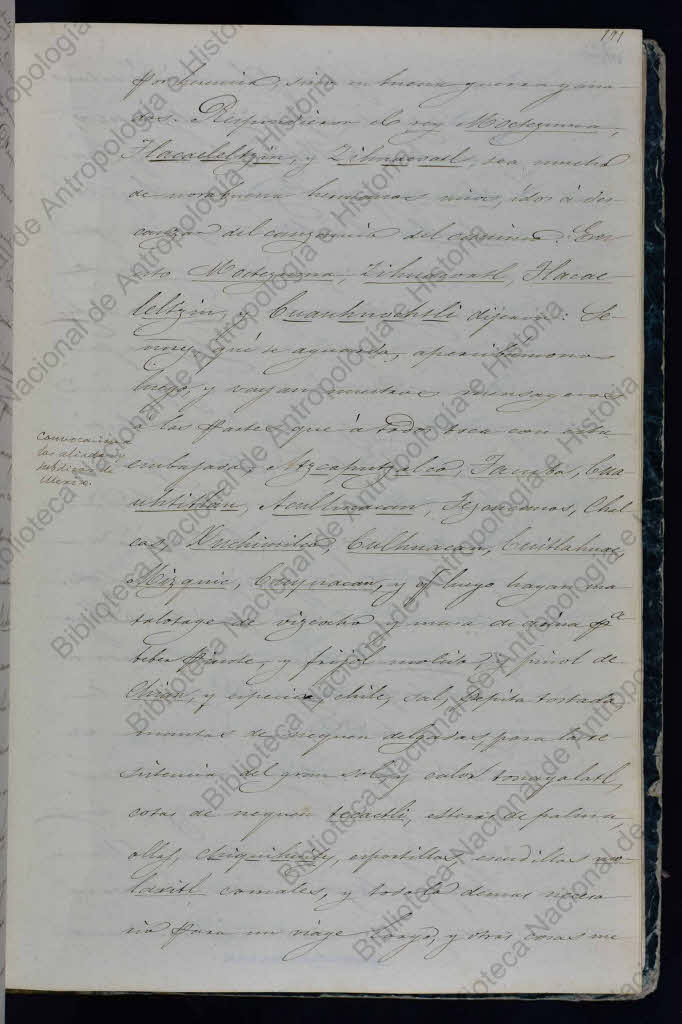 191
por herencia, sino en buena guerra gana-
dos. Respondieron el rey Moctezuma,
Tlacaeleltzin, y Zihuacoatl, sea mucho
de norabuena hermanos mios, idos á des-
canzar del canzancio del camino. En es-
to Moctezuma, Zihuacoatl, Tlacae-
leltzin, y Cuauhnochtli dijeron: Se-
ñores qué se aguarda, apercibámonos
luego, y vayan nuestros mensageros
á las partes que á todos toca con esta
embajada, Atzcaputzalco, Tacuba, Cua-
uhtitlan, Aculhuacan, Tezcucanos, Chal-
cas, Xuchimilco, Culhuacan, Cuitlahuac,
Mizquic, Cuyuacan, y q.e luego hagan ma-
talotage de vizcocho y masa de
beber pinole, y frijol molido, y pinol de
Chian, y especia, chile, sal, pepita tostada
mantas de nequen delgadas, para la re-
sistencia del gran sol, y calor tonayalatl,
cotas de nequen ecactli, esteras de palma,
ollas, chiquihuites, esportillas, escudillas mo-
laxitl comales, y todo lo demas necesa-
rio para un viage largo, y otras cosas me
Convocacion á
los aliados y
Mexico.
Biblioteca Nacional de Antropología e Historia